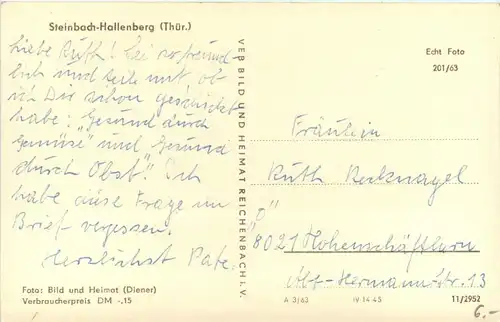 Steinbach-Hallenberg (Thür.)
Liebe Ruth! Sei so freund-
lich und teile mit ob
ich Dir schon geschickt
habe: „Gesund durch
Gemüse" und „Gesund
durch Obst". Ich
habe diese Frage im
Brief vergessen.
Herzlichst Pate.
Foto: Bild und Heimat (Diener)
Verbraucherpreis DM -.15
VEB BILD UND HEIMAT REICHENBACH I. V.
Echt Foto
201/63
Fräulein
Ruth Recknagel
8021 Hohenschäftlarn
-Hermann-Str. 13
A 3/63 IV-14-45 11/2952
6.-